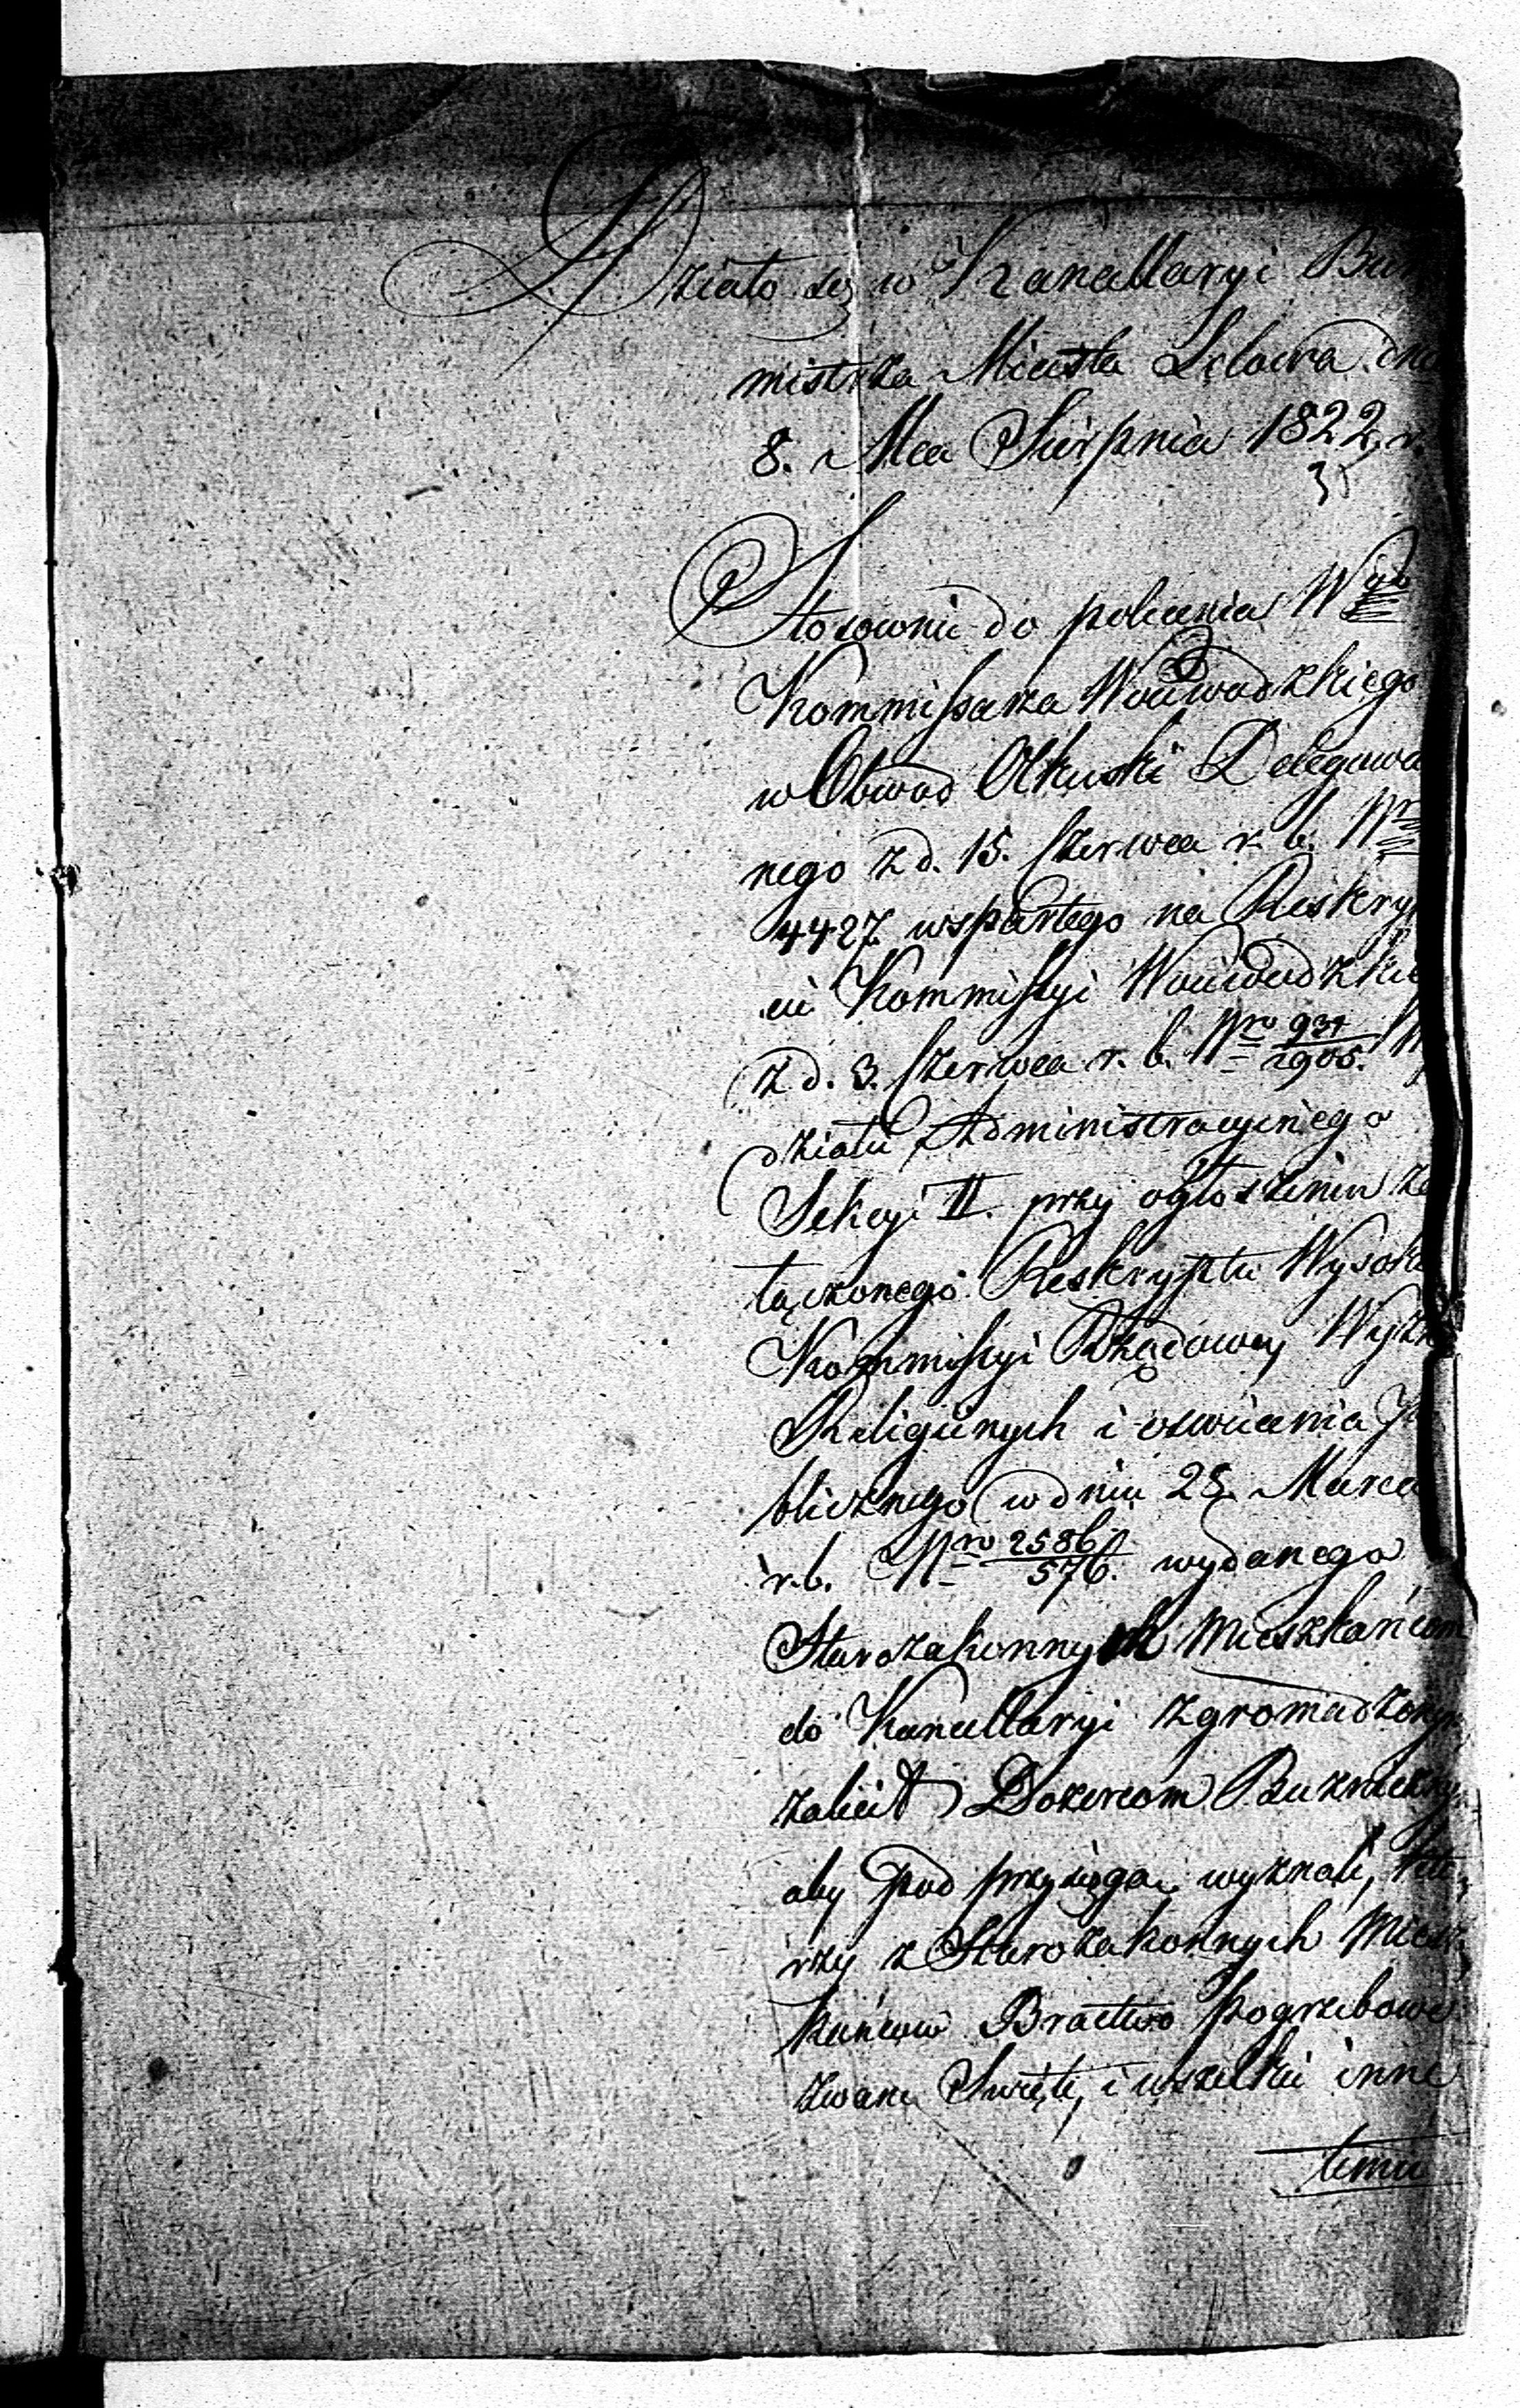 Działo się w Kancellaryi Bur
mistrza Miasta Lelowa dnia
8. Mca Sierpnia 1822 r.
Stosownie do polecenia Wgo
Kommissarza Woiewodzkiego
w Obwod Olkuski Delegowa
nego z d. 15. Czerwca r. b. Nro
4427. wspartego na Reskryp
cie Kommissyi Woiewodzkiey
z d. 3. Czerwca r. b. Nro 931/2905. Wy
działu Administracyinego
Sekcyi II. przy ogłoszeniu za
łączonego Reskryptu Wysokiey
Kommissyi Rządowey Wyzn
Religiinych i oswiecenia Pu
blicznego w dniu 28. Marca
r. b. Nro 2586/576. wydanego
Starozakonnych Mieszkańcom
do Kancellaryi zgromadzonym
zalicił Dozorcom Bużniczym
aby pod przysięgą wyznali, któ
rzy z Starozakonnych Miesz
kańcow Bractwo pogrzebowe
zwane Swięte, i wszelkie inne
temu